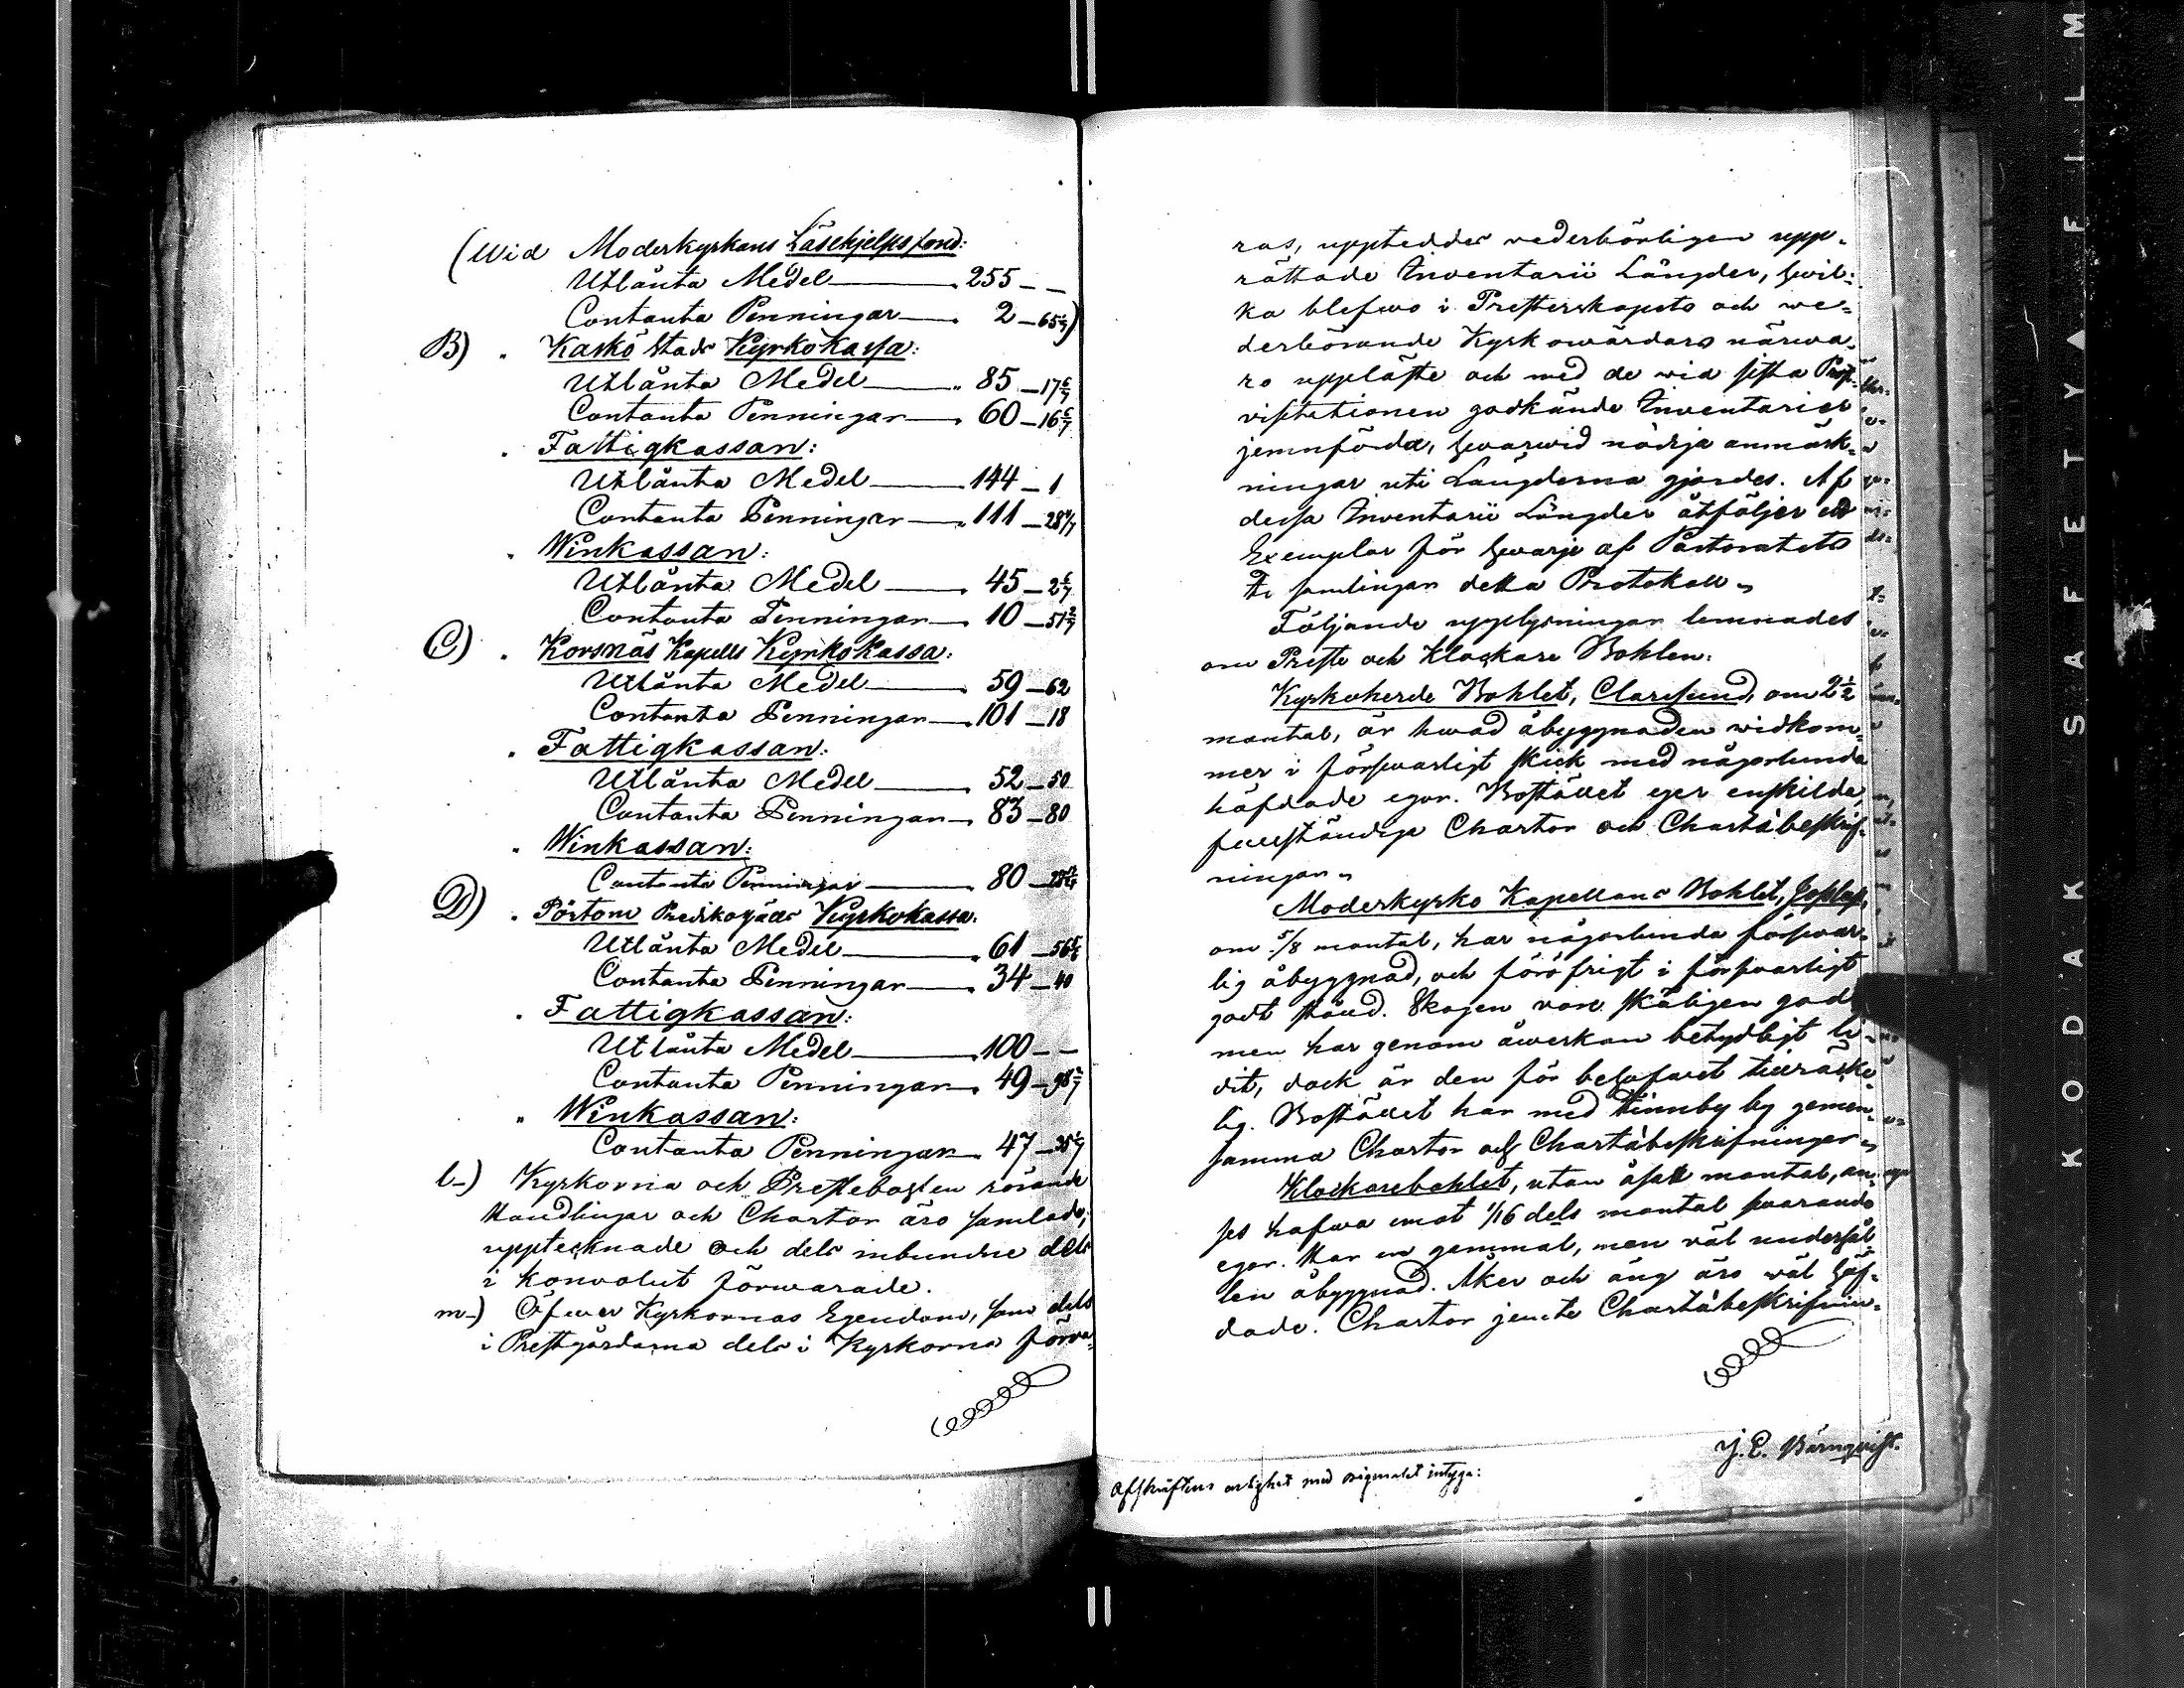 (Wid Moderkyrkans Läsehjelpsfond:
Utlånta Medel 255 — —
Contanta Penningar 2 — 65 5/7)
B) " Kaskö Stads Kyrkokassa:
Utlånta Medel " 85 — 17 6/7
Contanta Penningar 60 — 16 6/7
" Fattigkassan:
Utlånta Medel 144 — 1
Contanta Penningar " 111 — 28 4/7
" Winkassan:
Utlånta Medel 45 — 2 6/7
Contanta Penningar 10 — 51 2/7
C) " Korsnäs Kapells Kyrkokassa:
Utlånta Medel 59 — 62
Contanta Penningar 101 — 18
" Fattigkassan:
Utlånta Medel 52 — 50
Contanta Penningar 83 — 80
" Winkassan:
Contanta Penningar 80
D) " Pörtom Predikogälls Kyrkokassa:
Utlånta Medel 61 — 56
Contanta Penningar 34 — 40
" Fattigkassan:
Utlånta Medel 100 — —
Contanta Penningar 49
" Winkassan:
Contanta Penningar 47
l_) Kyrkorna och Prestebohlen rörande
Handlingar och Chartor äro samlade,
upptecknade och dels inbundne dels
i konvolut förwarade.
m_) Öfwer Kyrkornas Egendom, som dels
i Prestgårdarna dels i Kyrkorna förva-
ras, uppteddes vederbörligen upp-
rättade Inventarii Längder, hwil-
ka blefwo i Presterskapets och we-
derbörande Kyrkowärdars närwa-
ro uppläste och med de wid sista Prost-
visitationen godkände Inventarier
jemnförda, hwarwid nödige anmärk-
ningar uti Längderna gjordes. Af
dessa Inventarii Längder åtföljer ett
Exemplar för hwarje af Pastoratets
Församlingar detta Protokoll.
Följande upplysningar lemnades
om Preste och Klockare Bohlen:
Kyrkoherde Bohlet, Claresund, om 2 1/2
mantal, är hwad åbyggnaden widkom-
mer i förswarligt skick med någorlunda
häfdade egor. Bostället eger enskilda,
fullständiga Chartor och Chartæbeskrif-
ningar.
Moderkyrko Kapellans Bohlet,
om 5/8 mantal, har någorlunda förswar-
lig åbyggnad, och föröfrigt i förswarligt
godt stånd. Skogen von skäligen god
men har genom åwerkan betydligt li-
dit, dock är den för behofwet tillräcke-
lig. Bostället har med Finnby by gemen-
samma Chartor och Chartæbeskrifningar.
Klockarebohlet, utan åsatt mantal, an-
ses hafwa emot 1/16 dels mantal swarande
egor. Har en gammal, men väl underhål-
len åbyggnad. Åker och äng äro wäl häf-
dade. Chartor jemte Chartæbeskrifnin-
Afskriftens riktighet med originalet intyga:
J. E. Bärnqvist.
KODAK SAFETY FILM